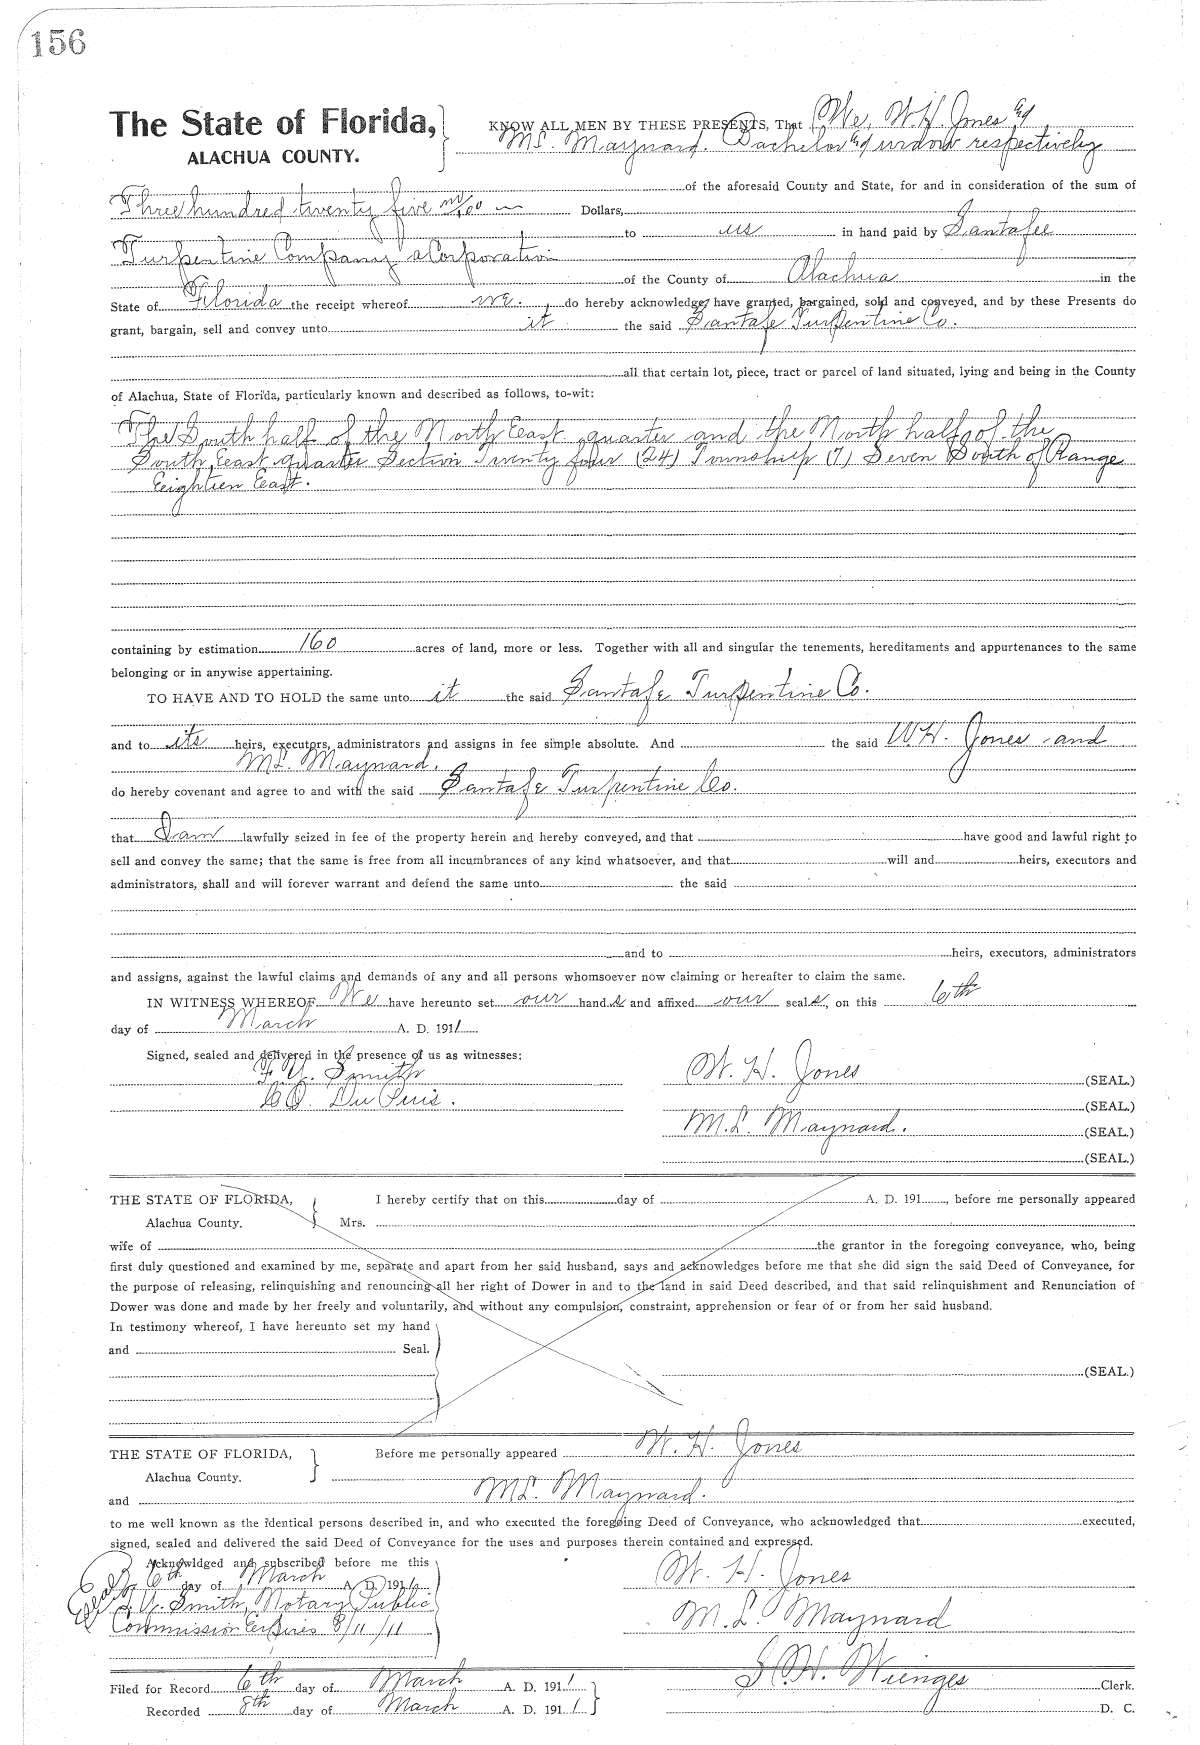 156
The State of Florida,
ALACHUA COUNTY.
KNOW ALL MEN BY THESE PRESENTS, That We, W. H. Jones &
M L. Maynard. Bachelor & widow respectively
of the aforesaid County and State, for and in consideration of the sum of
Three hundred twenty five no/100 Dollars,
to us in hand paid by Santafee
Turpentine Company a Corporation
of the County of Alachua in the
State of Florida the receipt whereof we. do hereby acknowledge, have granted, bargained, sold and conveyed, and by these Presents do
grant, bargain, sell and convey unto it the said Santafe Turpentine Co.
all that certain lot, piece, tract or parcel of land situated, lying and being in the County
of Alachua, State of Florida, particularly known and described as follows, to-wit:
The South half of the North East quarter and the North half of the
South East quarter Section Twenty four (24) Township (7) Seven South of Range
Eighteen East.
containing by estimation 160 acres of land, more or less. Together with all and singular the tenements, hereditaments and appurtenances to the same
belonging or in anywise appertaining.
TO HAVE AND TO HOLD the same unto it the said Santafe Turpentine Co.
and to its heirs, executors, administrators and assigns in fee simple absolute. And the said W.H. Jones and
M L. Maynard.
do hereby covenant and agree to and with the said Santafe Turpentine Co.
that I am lawfully seized in fee of the property herein and hereby conveyed, and that have good and lawful right to
sell and convey the same; that the same is free from all incumbrances of any kind whatsoever, and that will and heirs, executors and
administrators, shall and will forever warrant and defend the same unto the said
and to heirs, executors, administrators
and assigns, against the lawful claims and demands of any and all persons whomsoever now claiming or hereafter to claim the same.
IN WITNESS WHEREOF We have hereunto set our hands and affixed our seals, on this 6th
day of March A. D. 1911
Signed, sealed and delivered in the presence of us as witnesses:
F. Y. Smith
C O. Du Puis.
W. H. Jones (SEAL.)
(SEAL.)
M. L. Maynard. (SEAL.)
(SEAL.)
THE STATE OF FLORIDA,
Alachua County.
I hereby certify that on this day of A. D. 191 , before me personally appeared
Mrs.
wife of the grantor in the foregoing conveyance, who, being
first duly questioned and examined by me, separate and apart from her said husband, says and acknowledges before me that she did sign the said Deed of Conveyance, for
the purpose of releasing, relinquishing and renouncing all her right of Dower in and to the land in said Deed described, and that said relinquishment and Renunciation of
Dower was done and made by her freely and voluntarily, and without any compulsion, constraint, apprehension or fear of or from her said husband.
In testimony whereof, I have hereunto set my hand
and Seal.
(SEAL.)
THE STATE OF FLORIDA,
Alachua County.
Before me personally appeared W. H. Jones
and M L. Maynard.
to me well known as the identical persons described in, and who executed the foregoing Deed of Conveyance, who acknowledged that executed,
signed, sealed and delivered the said Deed of Conveyance for the uses and purposes therein contained and expressed.
Acknowldged and subscribed before me this
6th day of March A. D. 1911
Smith, Notary Public
Commission Expires 8/11/11
W. H. Jones
M. L. Maynard
Filed for Record 6th day of March A. D. 1911
Recorded 8th day of March A. D. 1911
S. H. Wienges Clerk.
D. C.